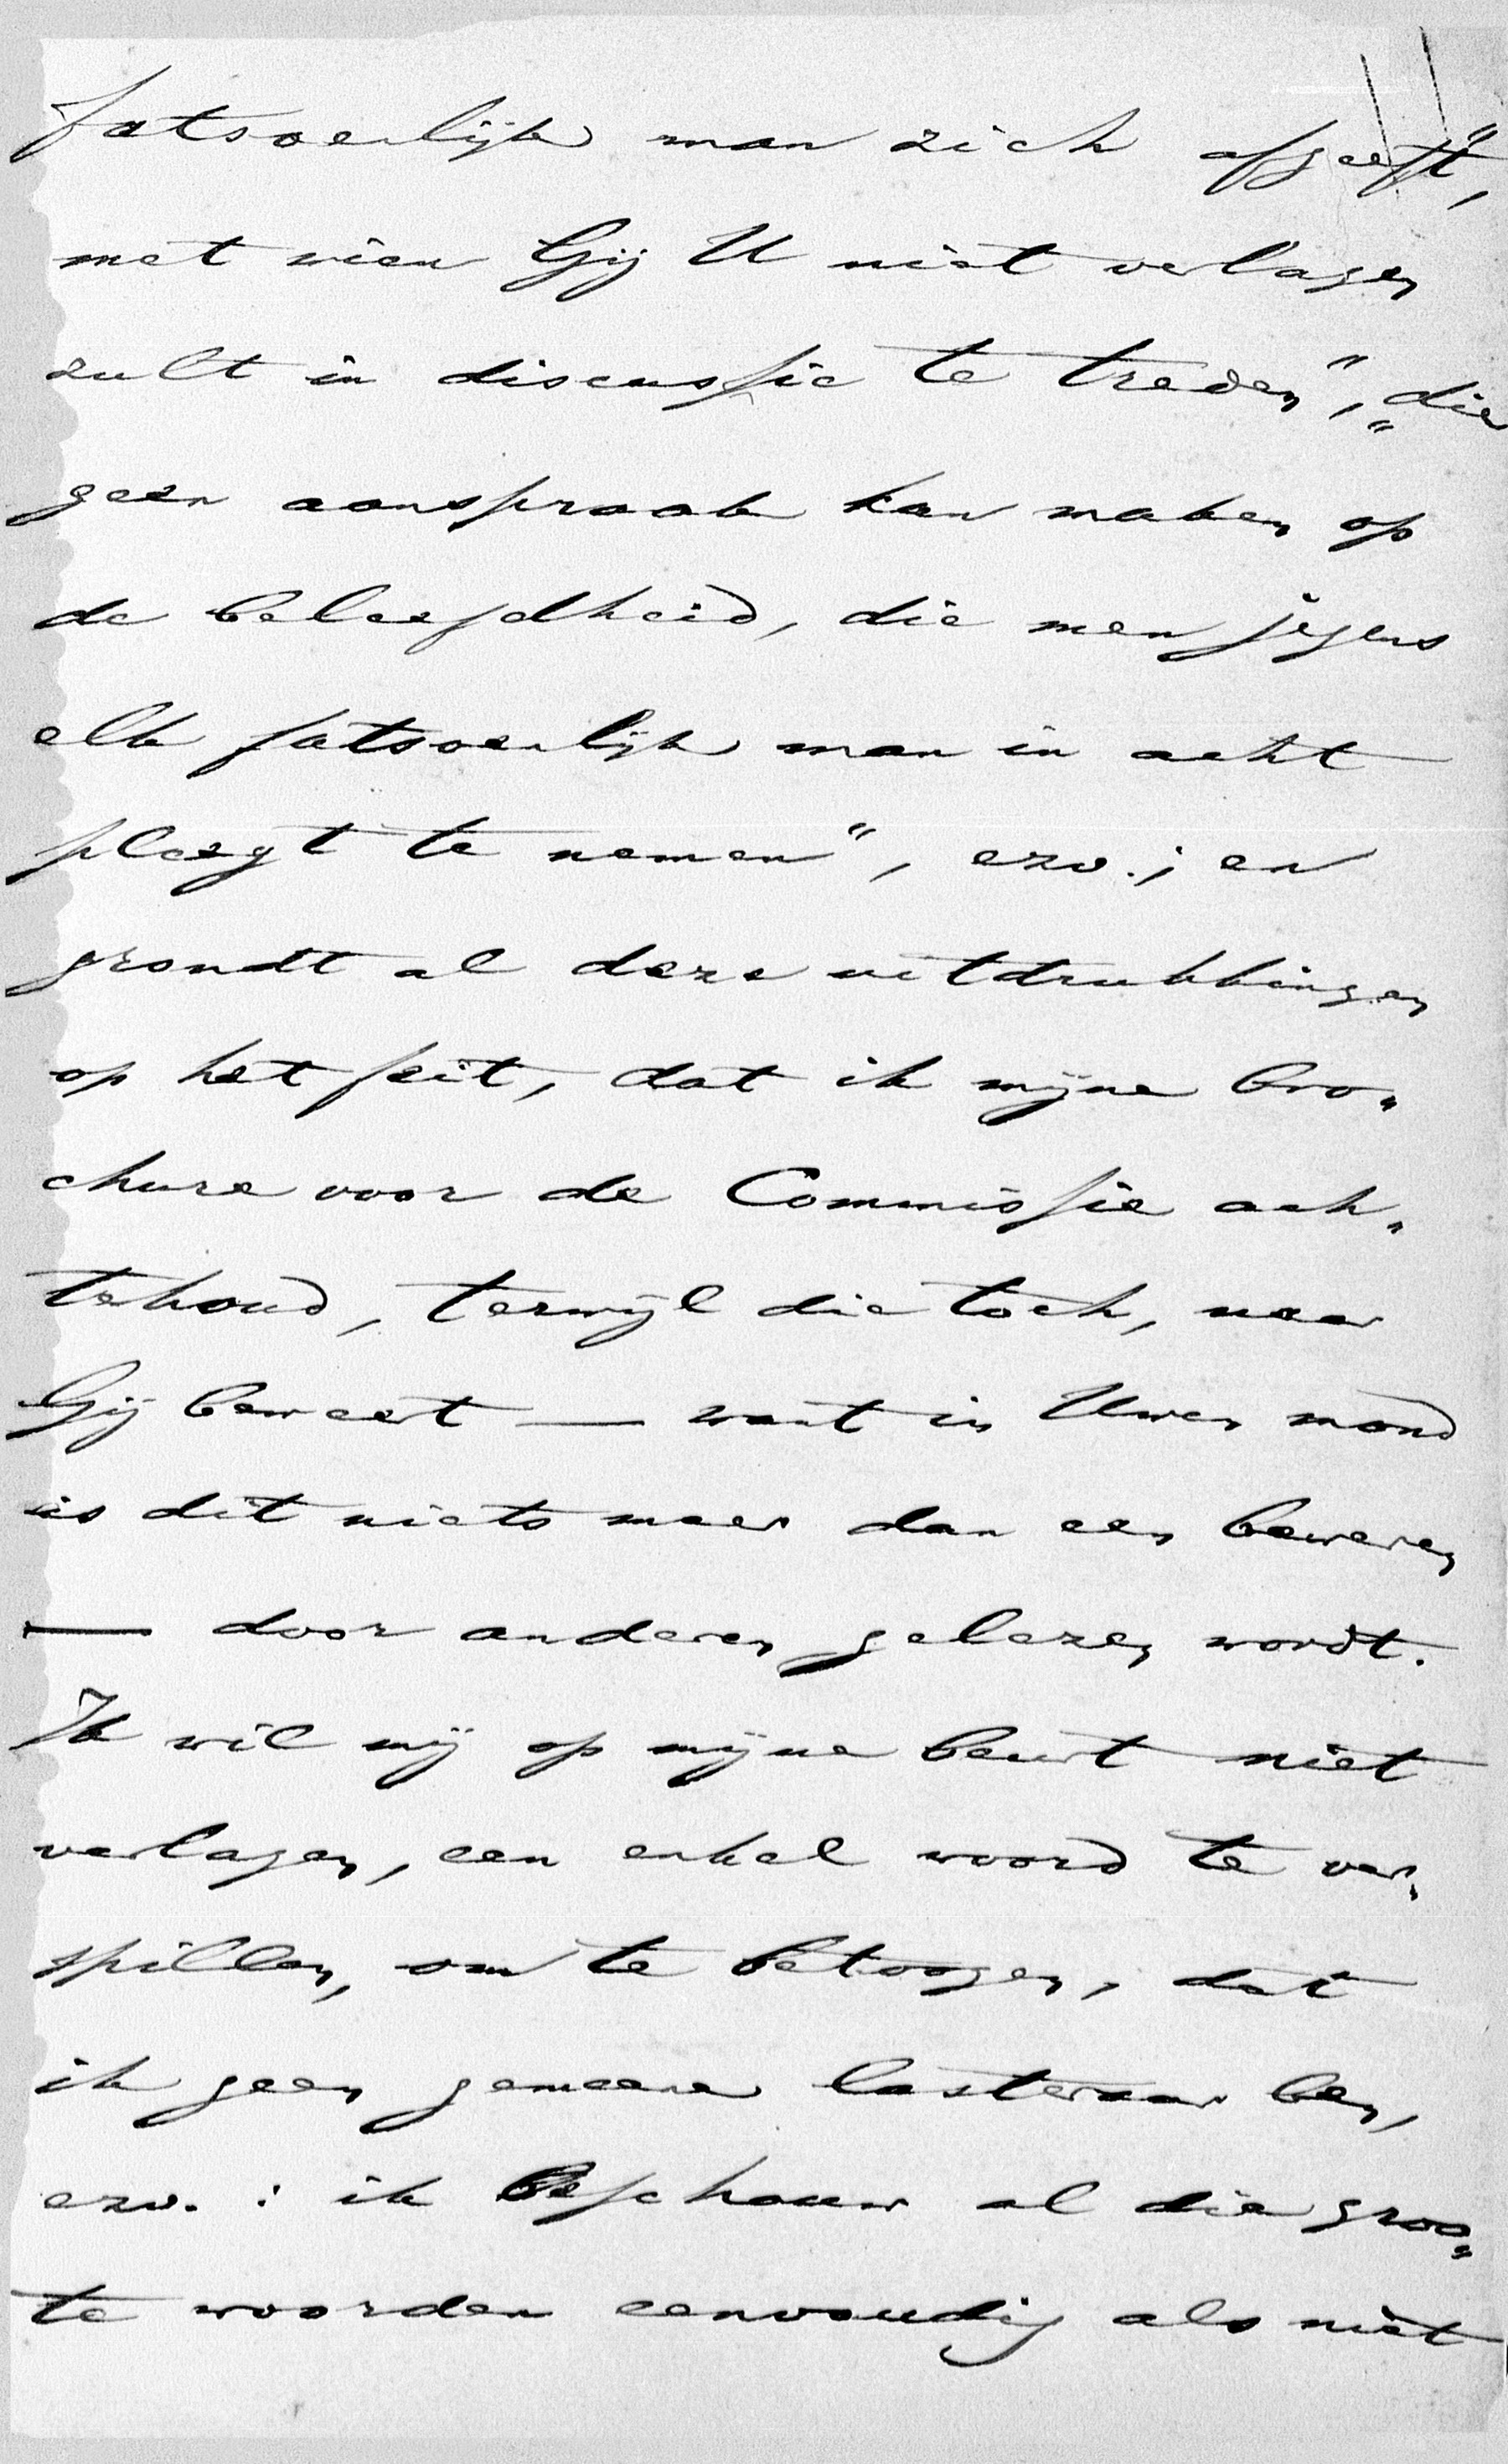 fatsoenlijk man zich afgeeft",
met wien Gij U niet verlagen
zult in discussie te treden", „die
geen aanspraak kan maken op
de beleefdheid, die men jegens
elk fatsoenlijk man in acht
pleegt te nemen", enz.; en
grondt al deze uitdrukkingen
op het feit, dat ik mijne bro„
chure voor de Commissie ach„
terhoud, terwijl die toch, naar
Gij beweert — want in Uwen mond
is dit niets meer dan een beweren
— door anderen gelezen wordt.
Ik wil mij op mijne beurt niet
verlagen, een enkel woord te ver„
spillen, om te betoogen, dat
ik geen gemeene lasteraar ben,
enz. : ik beschouw al die groo„
te woorden eenvoudig als niet